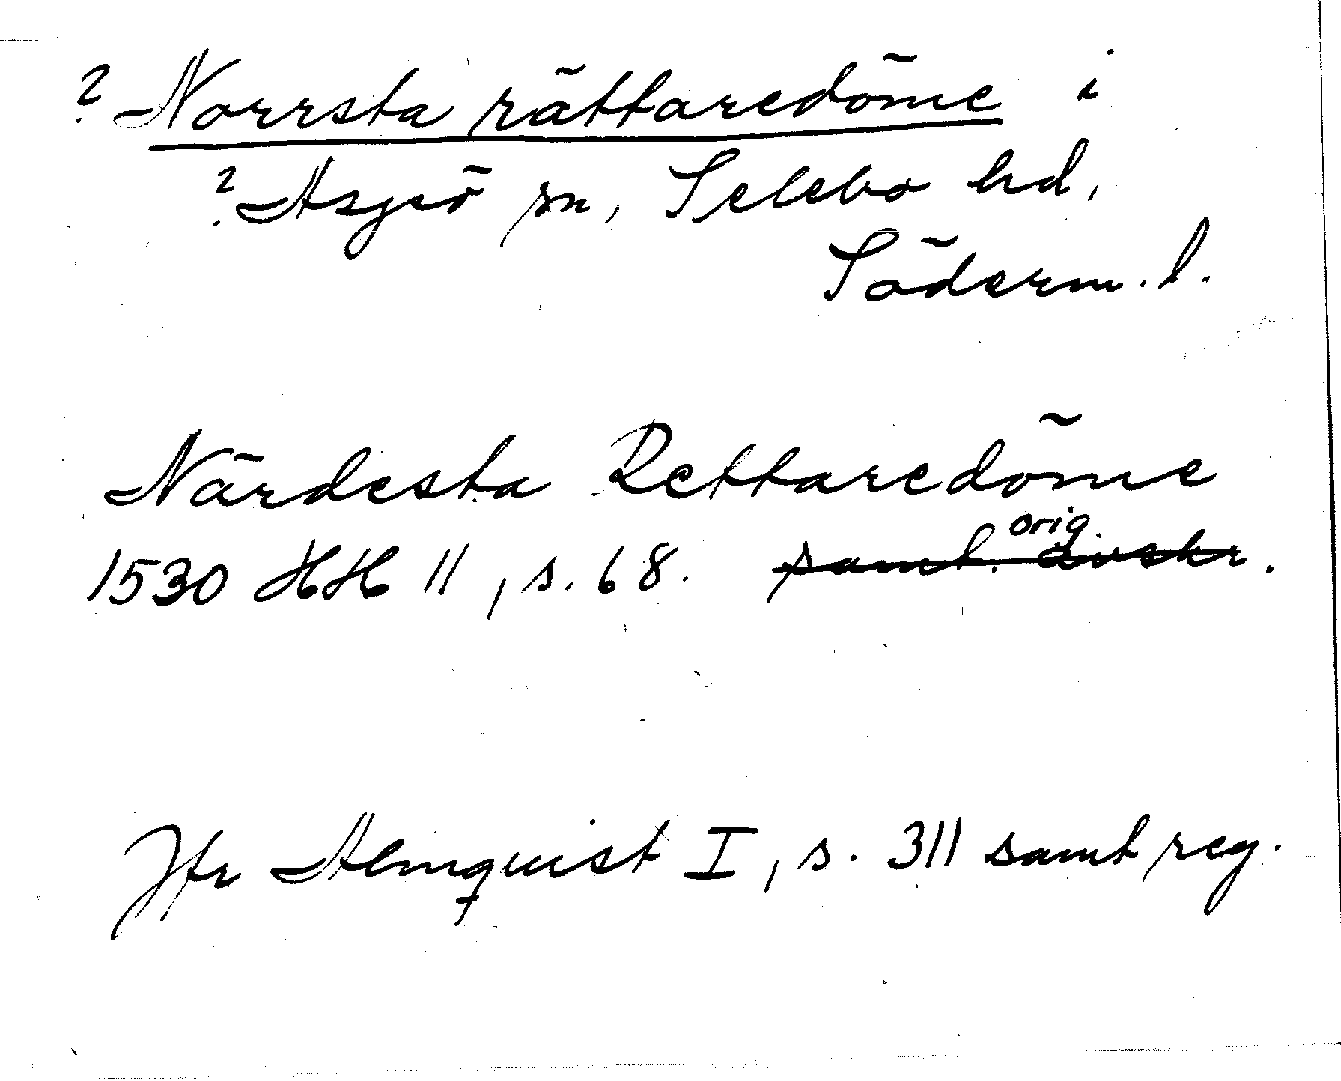 ? Norrsta rättaredöme i
? Aspö sn, Selebo hd,
Söderm. l.
Närdesta Rettaredöme
orig.
1530 HH 11, s. 68. samt. avskr.
Jfr Almquist I, s. 311 samt reg.